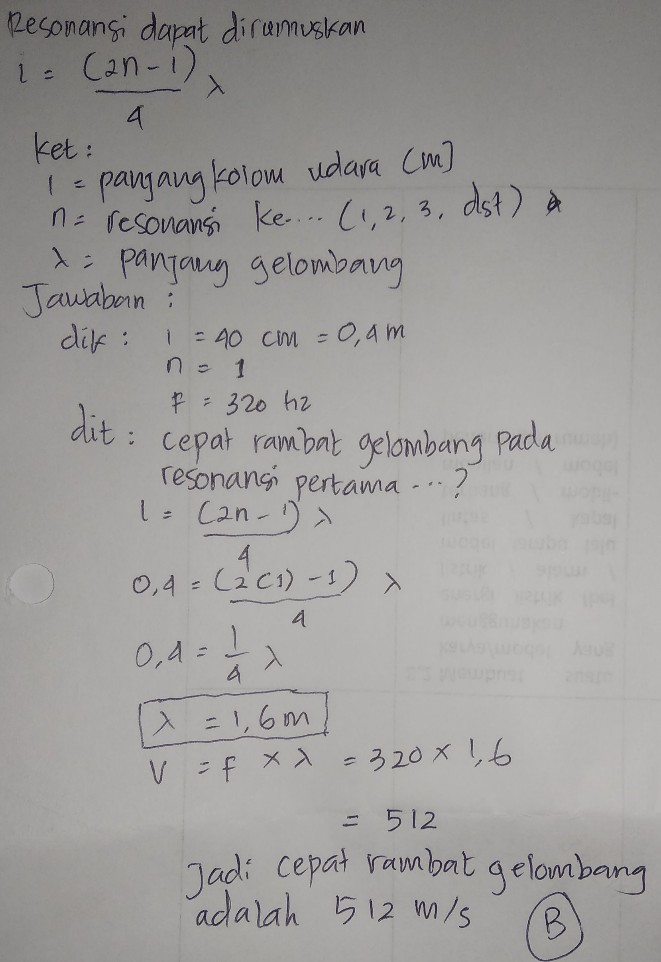 Resonansi dapat dirumuskan
l = (2n - 1) λ
4
ket :
l = panjang kolom udara (m)
n = resonansi ke.... (1, 2, 3, dst)
λ = panjang gelombang
Jawaban :
dik : l = 40 cm = 0,4 m
n = 1
F = 320 hz
dit : cepat rambat gelombang pada
resonansi pertama ...?
l = (2n - 1) λ
4
0,4 = (2(1) - 1) λ
4
0,4 = 1/4 λ
λ = 1,6 m
V = f × λ = 320 × 1,6
= 512
Jadi cepat rambat gelombang
adalah 512 m/s B